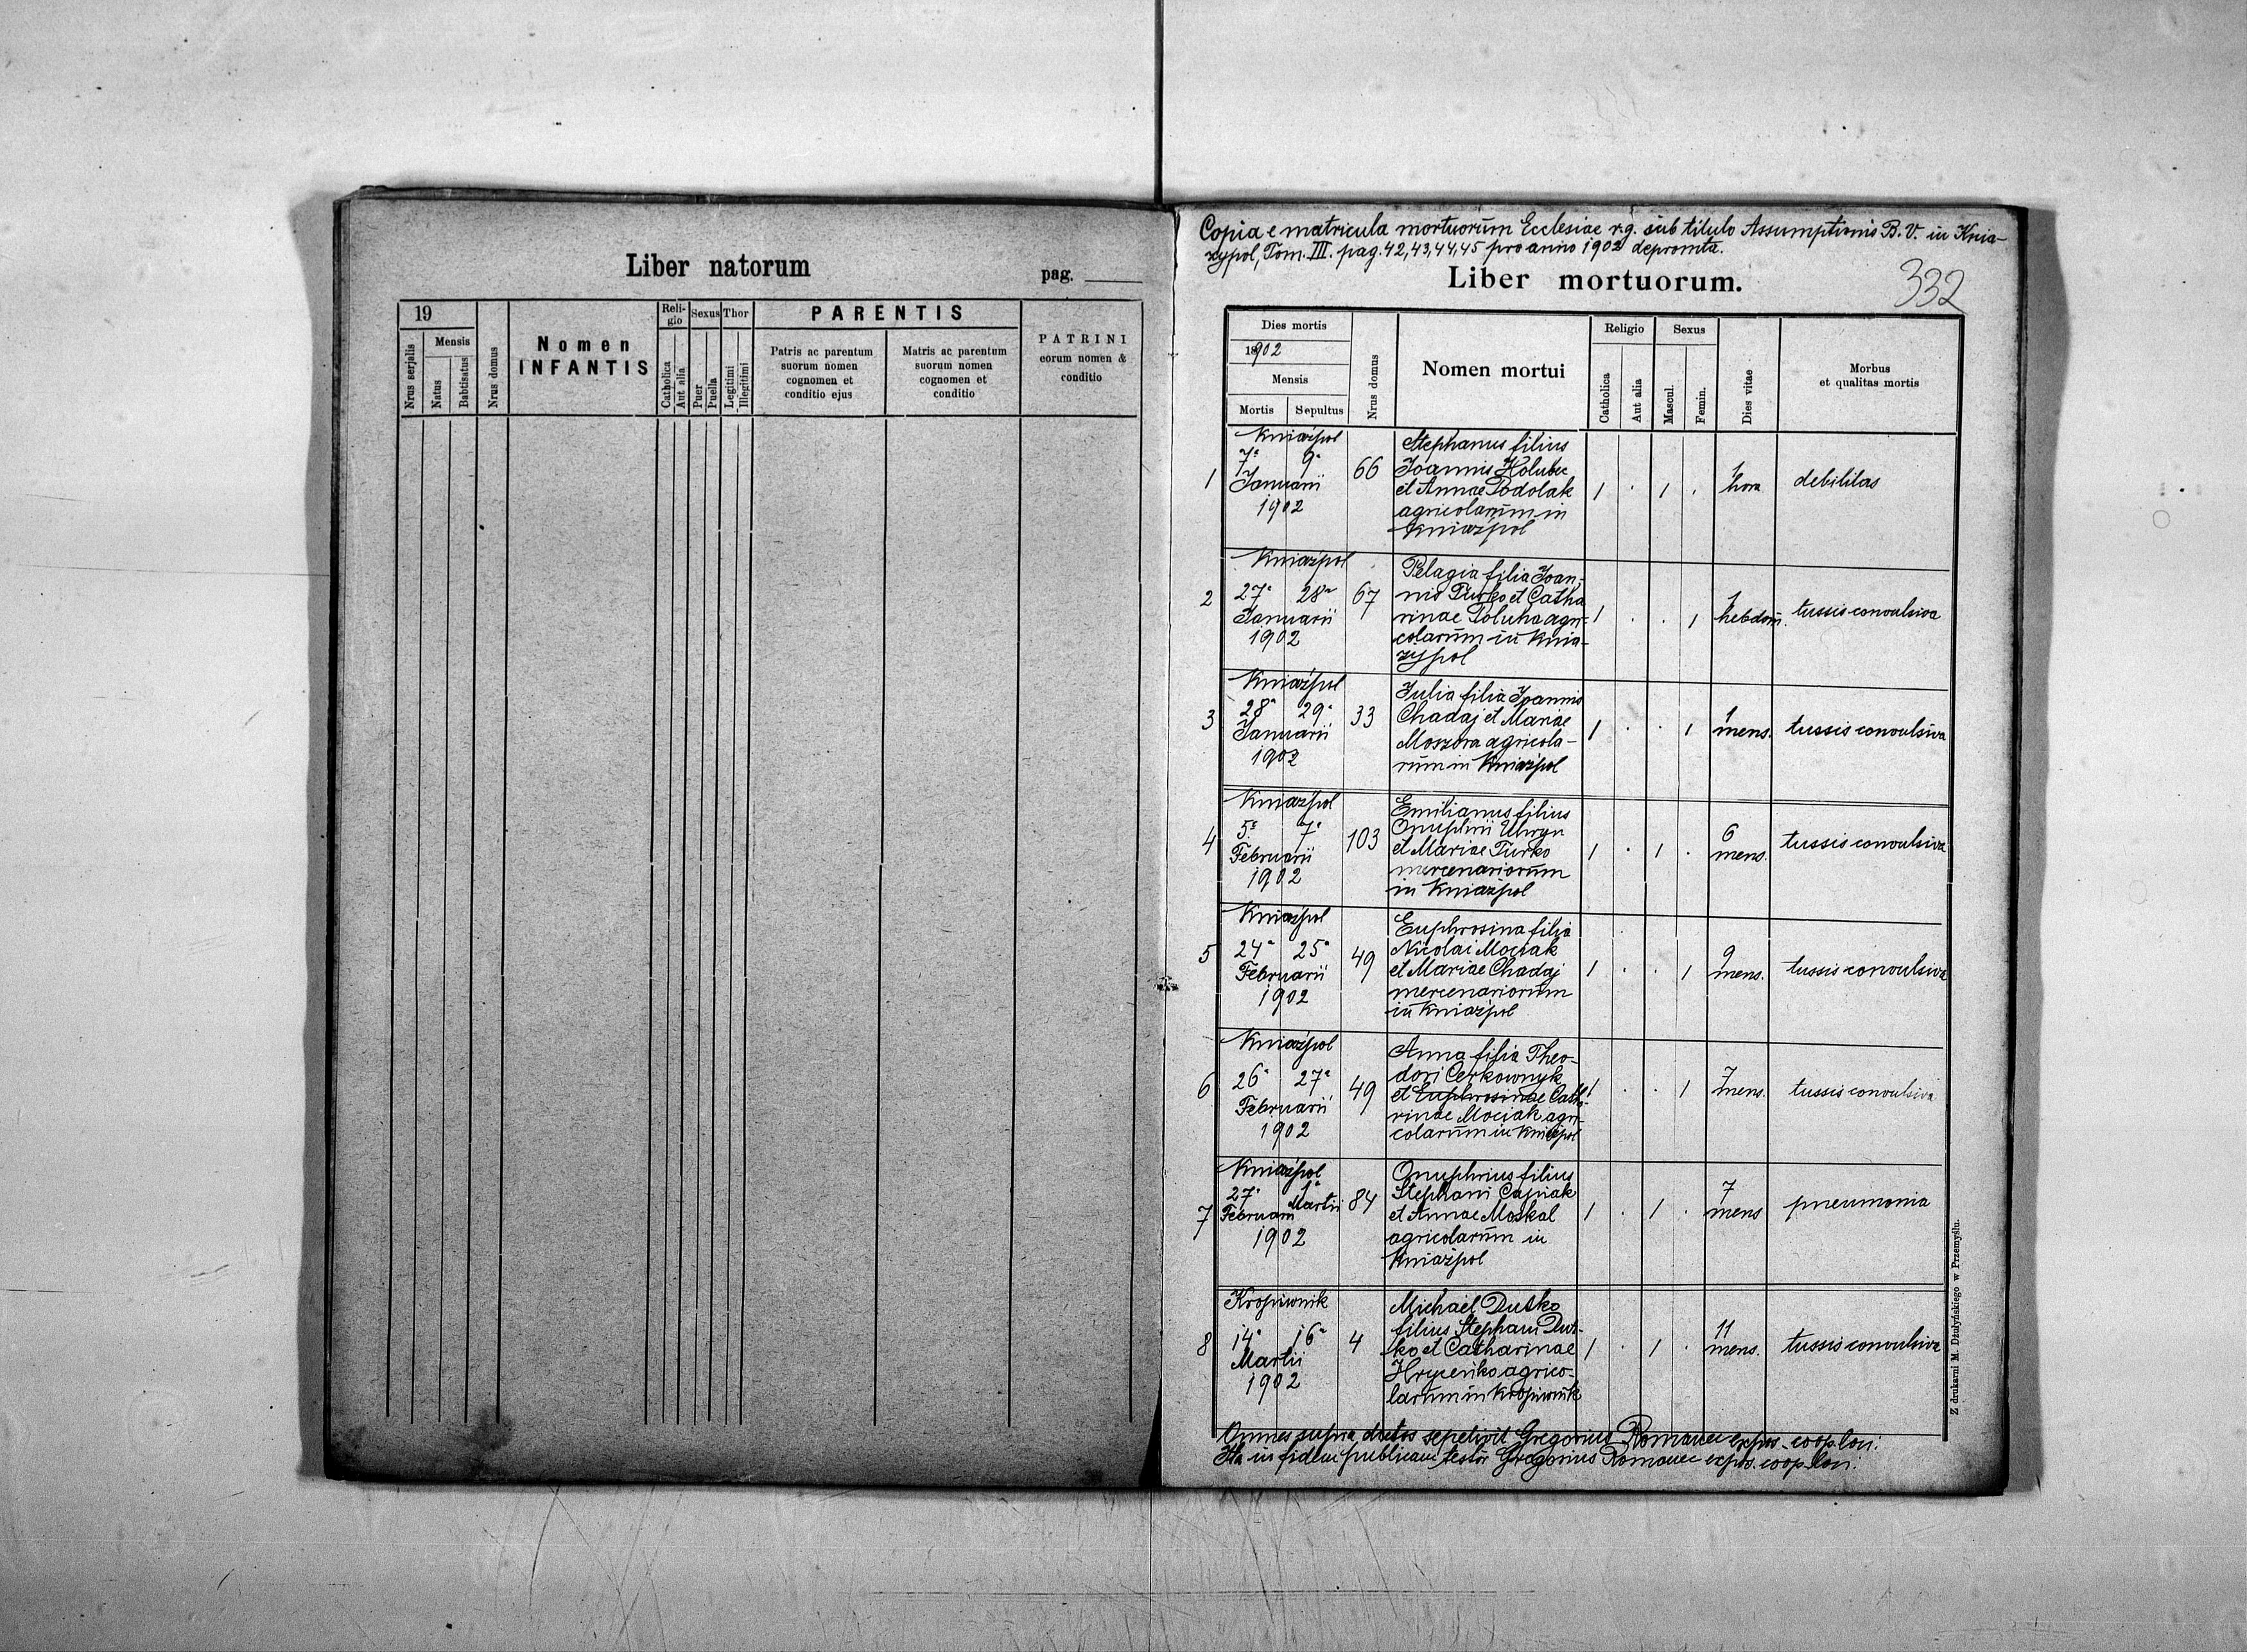 Liber natorum
pag.
19
Mensis
Nrus serjalis
Natus
Babtisatus
Nrus domus
Nomen
INFANTIS
Reli-
gio
Catholica
Aut alia
Sexus
Puer
Puella
Thor
Legitimi
Illegitimi
PARENTIS
Patris ac parentum
suorum nomen
cognomen et
conditio ejus
Matris ac parentum
suorum nomen
cognomen et
conditio
PATRINI
eorum nomen &
conditio
Copia e matricula mortuorum Ecclesiae r.g. sub titulo Assumptionis B.V. in Knia-
zypol, Tom. III. pag. 42, 43, 44, 45 pro anno 1902 depromta.
Liber mortuorum.
332
Dies mortis
1902
Mensis
Mortis
Sepultus
Nrus domus
Nomen mortui
Religio
Catholica
Aut alia
Sexus
Mascul.
Femin.
Dies vitae
Morbus
et qualitas mortis
Kniaźpol
1 7a 9a 66
Januarii
1902
Stephanus filius
Joannis Holubec
et Annae Podolak
agricolarum in
Kniaźpol
1 . 1 . 1 hora debilitas
Kniaźpol
2 27a 28a 67
Januarii
1902
Pelagia filia Joan-
nis Turko et Catha
rinae Poluha agri-
colarum in Knia-
zypol
1 . . 1 1 hebdom. tussis convulsiva
Kniaźpol
3 28a 29a 33
Januarii
1902
Julia filia Joannis
Chadaj et Mariae
Moszora agricola-
rum in Kniaźpol
1 . . 1 1 mens. tussis convulsiva
Kniaźpol
4 5a 7a 103
Februarii
1902
Emilianus filius
Onuphrii Uhryn
et Mariae Turko
mercenariorum
in Kniaźpol
1 . 1 . 6 mens. tussis convulsiva
Kniaźpol
5 24a 25a 49
Februarii
1902
Euphrosina filia
Nicolai Mociak
et Mariae Chadaj
mercenariorum
in Kniaźpol
1 . . 1 9 mens. tussis convulsiva
Kniaźpol
6 26a 27a 49
Februarii
1902
Anna filia Theo-
dori Cerkownyk
et Euphrosinae Catha-
rinae Mociak agri-
colarum in Kniaźpol
1 . . 1 7 mens. tussis convulsiva
Kniaźpol
7 27a 1a 84
Februarii Martii
1902
Onuphrius filius
Stephani Capiak
et Annae Moskal
agricolarum in
Kniaźpol
1 . 1 . 7 mens pneumonia
Kropiwnik
8 14a 16a 4
Martii
1902
Michaël Dutko
filius Stephani Dut-
ko et Catharinae
Hrycenko agrico-
larum in Kropiwnik
1 . 1 . 11 mens. tussis convulsiva
Omnes supra dictos sepelivit Gregorius Romanec expos. coop. loci.
Ita in fidem publicam testor Gregorius Romanec expos. coop. loci.
Z drukarni M. Dżułyńskiego w Przemyślu.